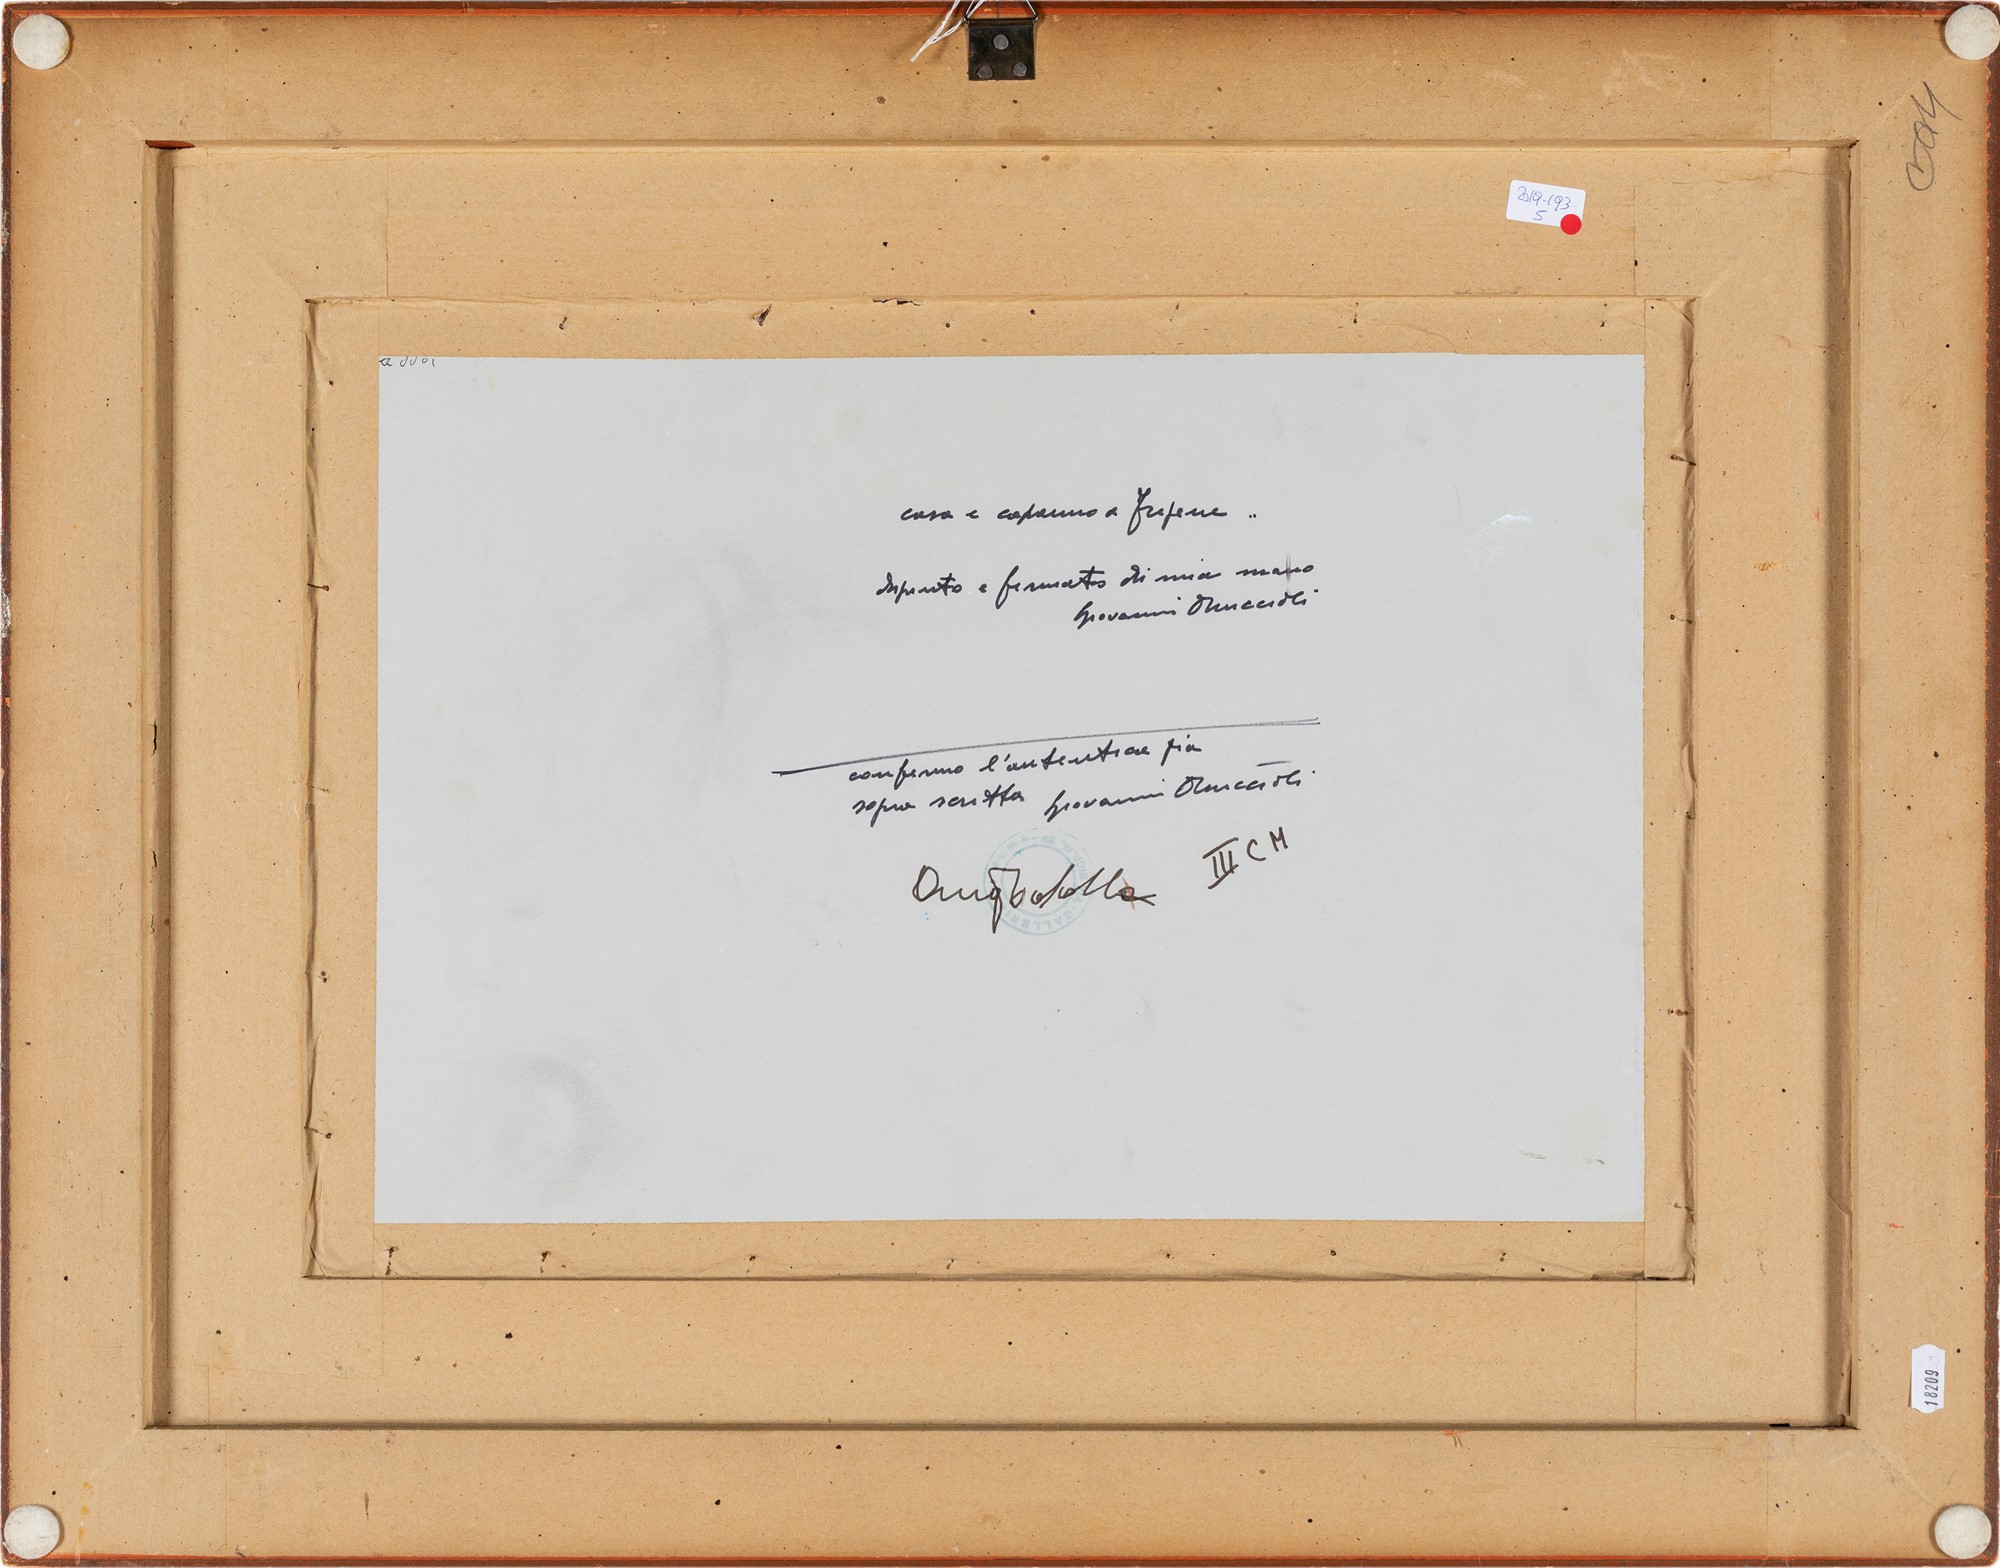 2019-193
5
casa e capanno a Fregene ..
dipinto e firmato di mia mano
Giovanni Omiccioli
confermo l'autentica già
sopra scritta Giovanni Omiccioli
III C M
18209